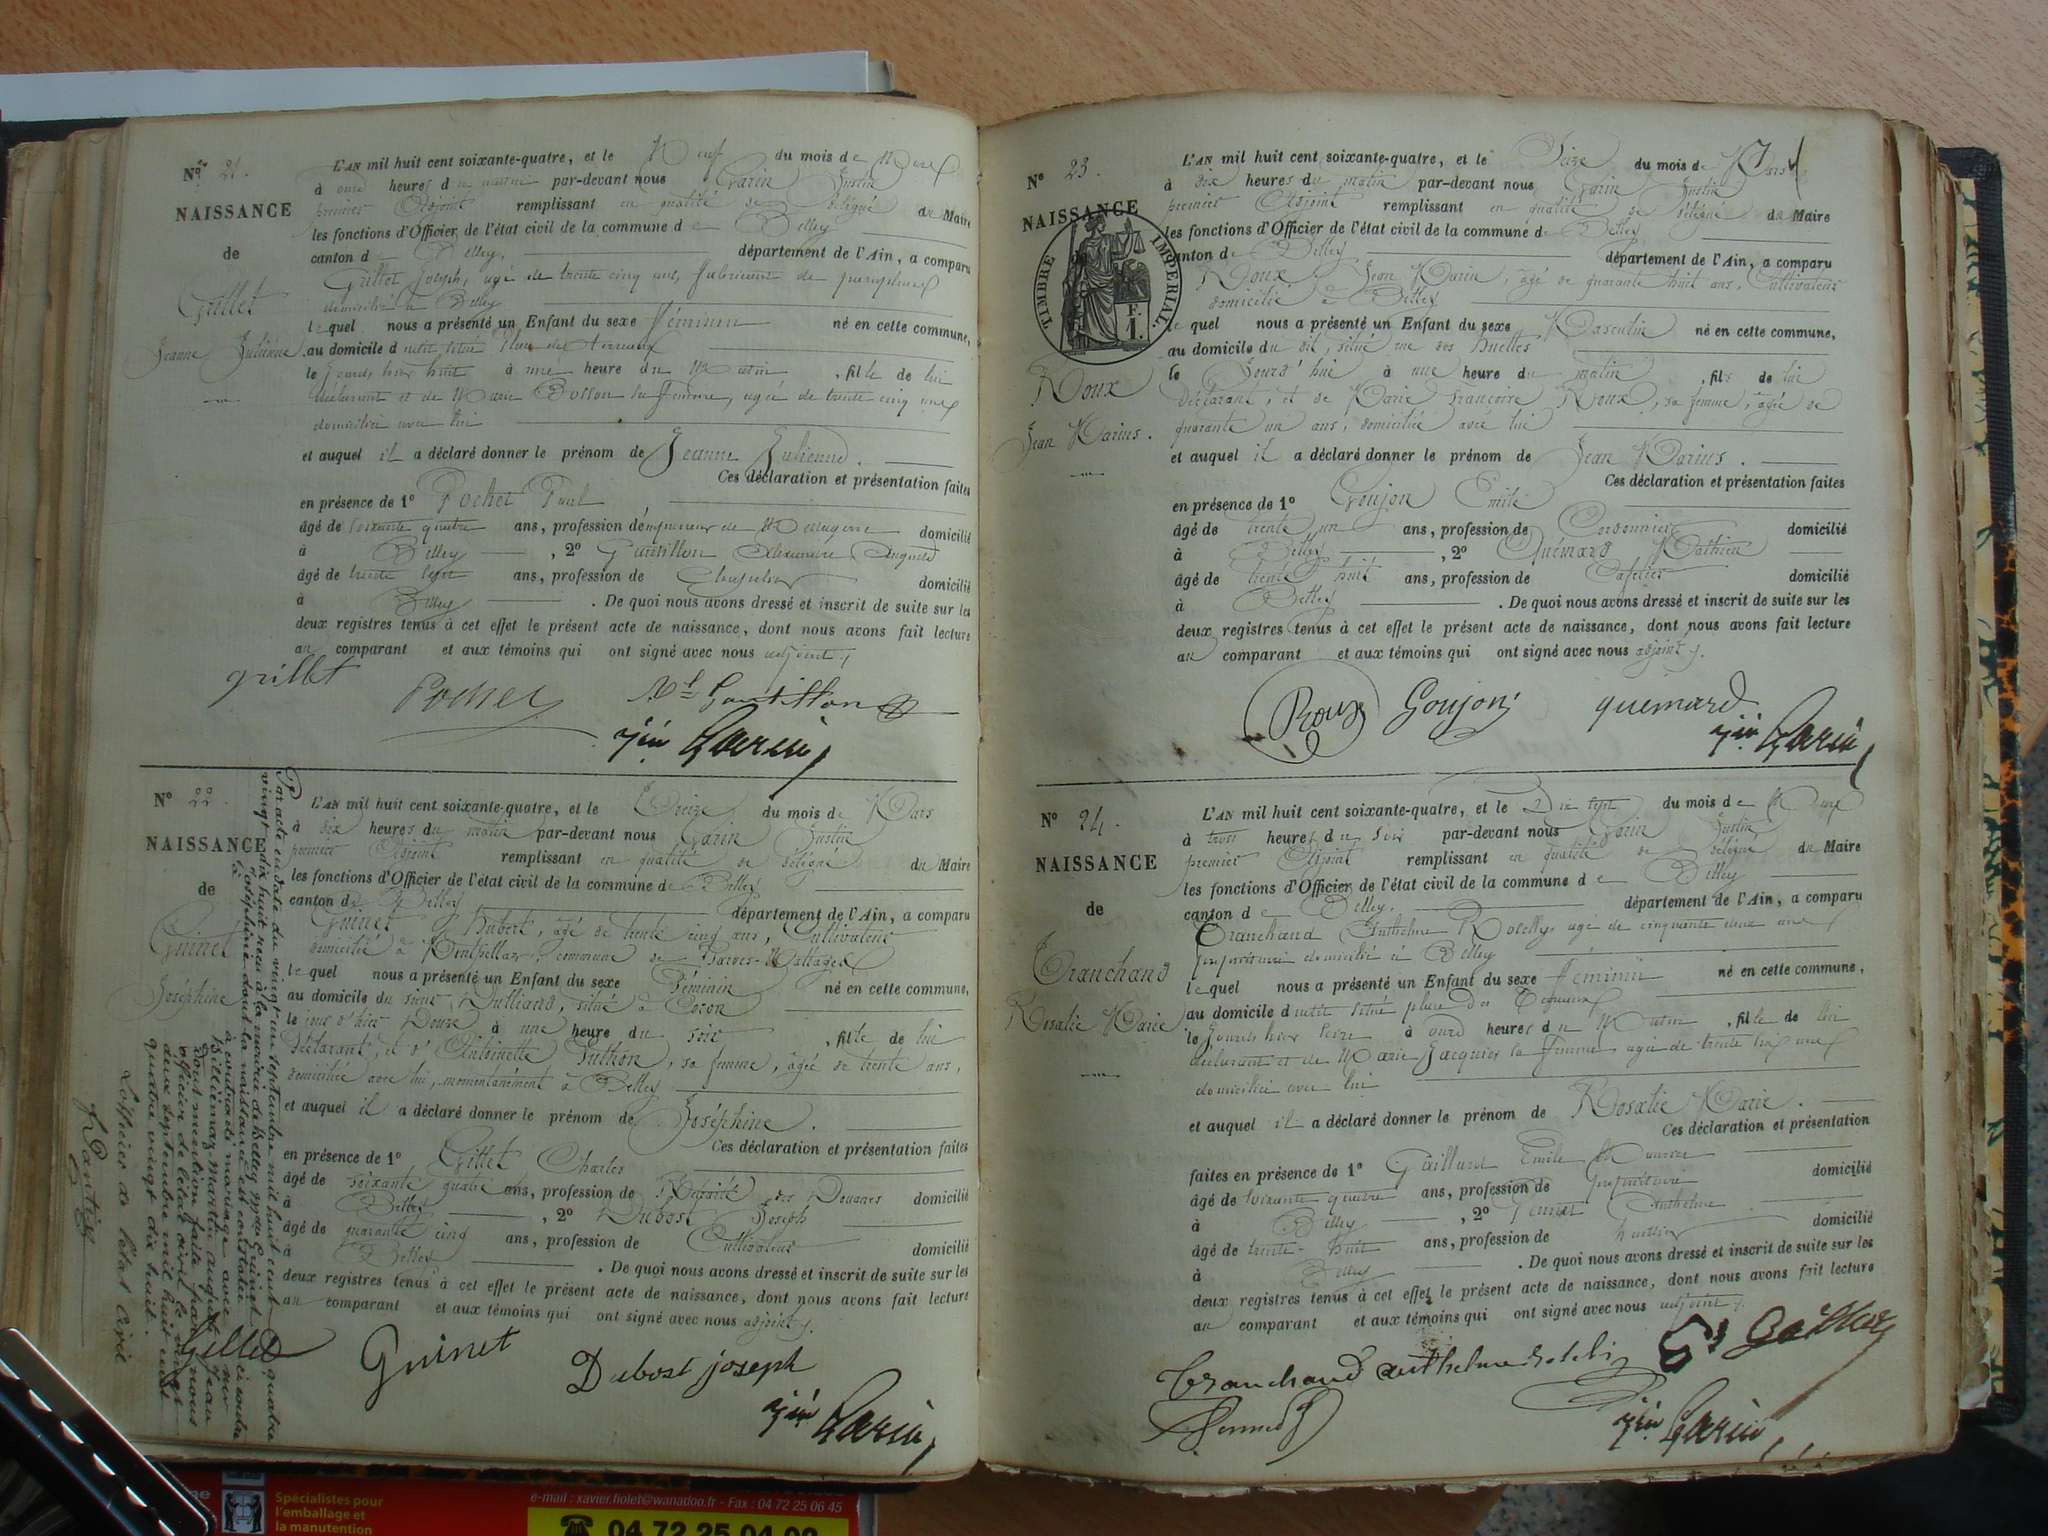 Nº 21.
NAISSANCE
de
Gillet
Jeanne Julienne.
L'AN mil huit cent soixante-quatre, et le Neuf du mois de Mars
à onze heures du matin par-devant nous Garin Justin
premier Adjoint remplissant en qualité de délégué du Maire
les fonctions d'Officier de l'état civil de la commune de Belley
canton de Belley, département de l'Ain, a comparu
Gillet Joseph, agé de trente cinq ans, fabricant de
domicilié à Belley
lequel nous a présenté un Enfant du sexe féminin né en cette commune,
au domicile d situé Place des Terreaux
le jour hier huit à une heure du Matin, fille de lui
déclarant et de Marie Bosson sa femme, agée de trente cinq ans
domiciliée avec lui
et auquel il a déclaré donner le prénom de Jeanne Julienne.
Ces déclaration et présentation faites
en présence de 1º Pocher Paul
âgé de soixante quatre ans, profession d'empreneur de domicilié
à Belley, 2º Gautillon Auguste
âgé de trente sept ans, profession de Chapelier domicilié
à Belley. De quoi nous avons dressé et inscrit de suite sur les
deux registres tenus à cet effet le présent acte de naissance, dont nous avons fait lecture
au comparant et aux témoins qui ont signé avec nous adjoint.
grillet Pocher Gautillon
Garin
Nº 22.
NAISSANCE
de
Guinet
Joséphine
L'AN mil huit cent soixante-quatre, et le Treize du mois de Mars
à dix heures du matin par-devant nous Garin Justin
premier Adjoint remplissant en qualité de délégué du Maire
les fonctions d'Officier de l'état civil de la commune de Belley
canton de Belley département de l'Ain, a comparu
Guinet Hubert, âgé de trente cinq ans, Cultivateur
domicilié à commune de
lequel nous a présenté un Enfant du sexe féminin né en cette commune,
au domicile du sieur situé à Coron
le jour d'hier Douze à une heure du soir, fille de lui
déclarant, et d'Antoinette Puthon, sa femme, âgée de trente ans,
domiciliée avec lui, momentanément à Belley
et auquel il a déclaré donner le prénom de Joséphine.
Ces déclaration et présentation faites
en présence de 1º Gillet Charles
âgé de soixante quatre ans, profession de Retraité des Douanes domicilié
à Belley, 2º Dubost Joseph
âgé de quarante cinq ans, profession de Cultivateur domicilié
à Belley. De quoi nous avons dressé et inscrit de suite sur les
deux registres tenus à cet effet le présent acte de naissance, dont nous avons fait lecture
au comparant et aux témoins qui ont signé avec nous adjoint.
Par acte en date du vingt un septembre mil huit cent quatre
vingt dix huit reçu à la mairie de Belley Guinet
Joséphine dont la naissance est constatée ci contre
a contracté mariage avec
Billiémaz Jean
Dont mention faite par nous
officier de l'état civil le vingt
deux septembre mil huit cent
quatre vingt dix huit.
L'officier de l'état civil
Gillet Guinet Dubost joseph
Garin
Nº 23.
NAISSANCE
TIMBRE IMPERIAL.
F.
1.
Roux
Jean Marius.
L'AN mil huit cent soixante-quatre, et le Seize du mois de Mars
à dix heures du matin par-devant nous Garin Justin
premier Adjoint remplissant en qualité de délégué du Maire
les fonctions d'Officier de l'état civil de la commune de Belley
canton de Belley département de l'Ain, a comparu
Roux Jean Marin, âgé de quarante huit ans, Cultivateur
domicilié à Belley
lequel nous a présenté un Enfant du sexe Masculin né en cette commune,
au domicile du dit, situé rue des
le Jourd'hui à une heure du matin, fils de lui
déclarant, et de Marie Françoise Roux, sa femme, âgée de
quarante un ans, domiciliée avec lui
et auquel il a déclaré donner le prénom de Jean Marius.
Ces déclaration et présentation faites
en présence de 1º Goujon Emile
âgé de trente un ans, profession de Cordonnier domicilié
à Belley, 2º Quémard Mathieu
âgé de trente huit ans, profession de Cafetier domicilié
à Belley. De quoi nous avons dressé et inscrit de suite sur les
deux registres tenus à cet effet le présent acte de naissance, dont nous avons fait lecture
au comparant et aux témoins qui ont signé avec nous adjoint.
Roux Goujon quemard
Garin
Nº 24.
NAISSANCE
de
Tranchand
Rosalie Marie
L'AN mil huit cent soixante-quatre, et le Dix sept du mois de Mars
à trois heures du soir par-devant nous Garin Justin
premier Adjoint remplissant en qualité de délégué du Maire
les fonctions d'Officier de l'état civil de la commune de Belley
canton de Belley. département de l'Ain, a comparu
Tranchand Anthelme agé de cinquante deux ans
propriétaire domicilié à Belley
lequel nous a présenté un Enfant du sexe féminin né en cette commune,
au domicile d situé place des Terreaux
le Jour hier seize à onze heures du Matin, fille de lui
déclarant et de Marie Jacquier sa femme agée de trente ans
domiciliée avec lui
et auquel il a déclaré donner le prénom de Rosalie Marie.
Ces déclaration et présentation
faites en présence de 1º Gaillard Emile
âgé de soixante quatre ans, profession de propriétaire domicilié
à Belley, 2º Anthelme
âgé de trente-huit ans, profession de huissier domicilié
à Belley. De quoi nous avons dressé et inscrit de suite sur les
deux registres tenus à cet effet le présent acte de naissance, dont nous avons fait lecture
au comparant et aux témoins qui ont signé avec nous adjoint.
Tranchand anthelme
Garin
Spécialistes pour
l'emballage et
la manutention
e-mail : xavier.fiolet@wanadoo.fr - Fax : 04 72 25 06 45